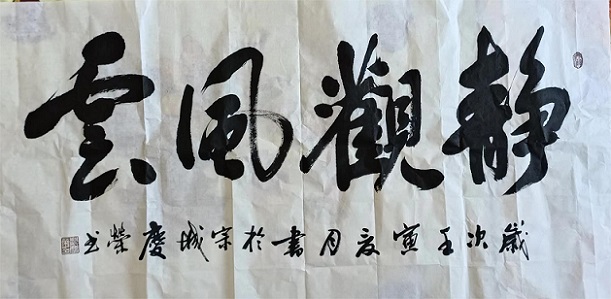 靜觀風雲
歲次壬寅夏月書於宗城慶榮书